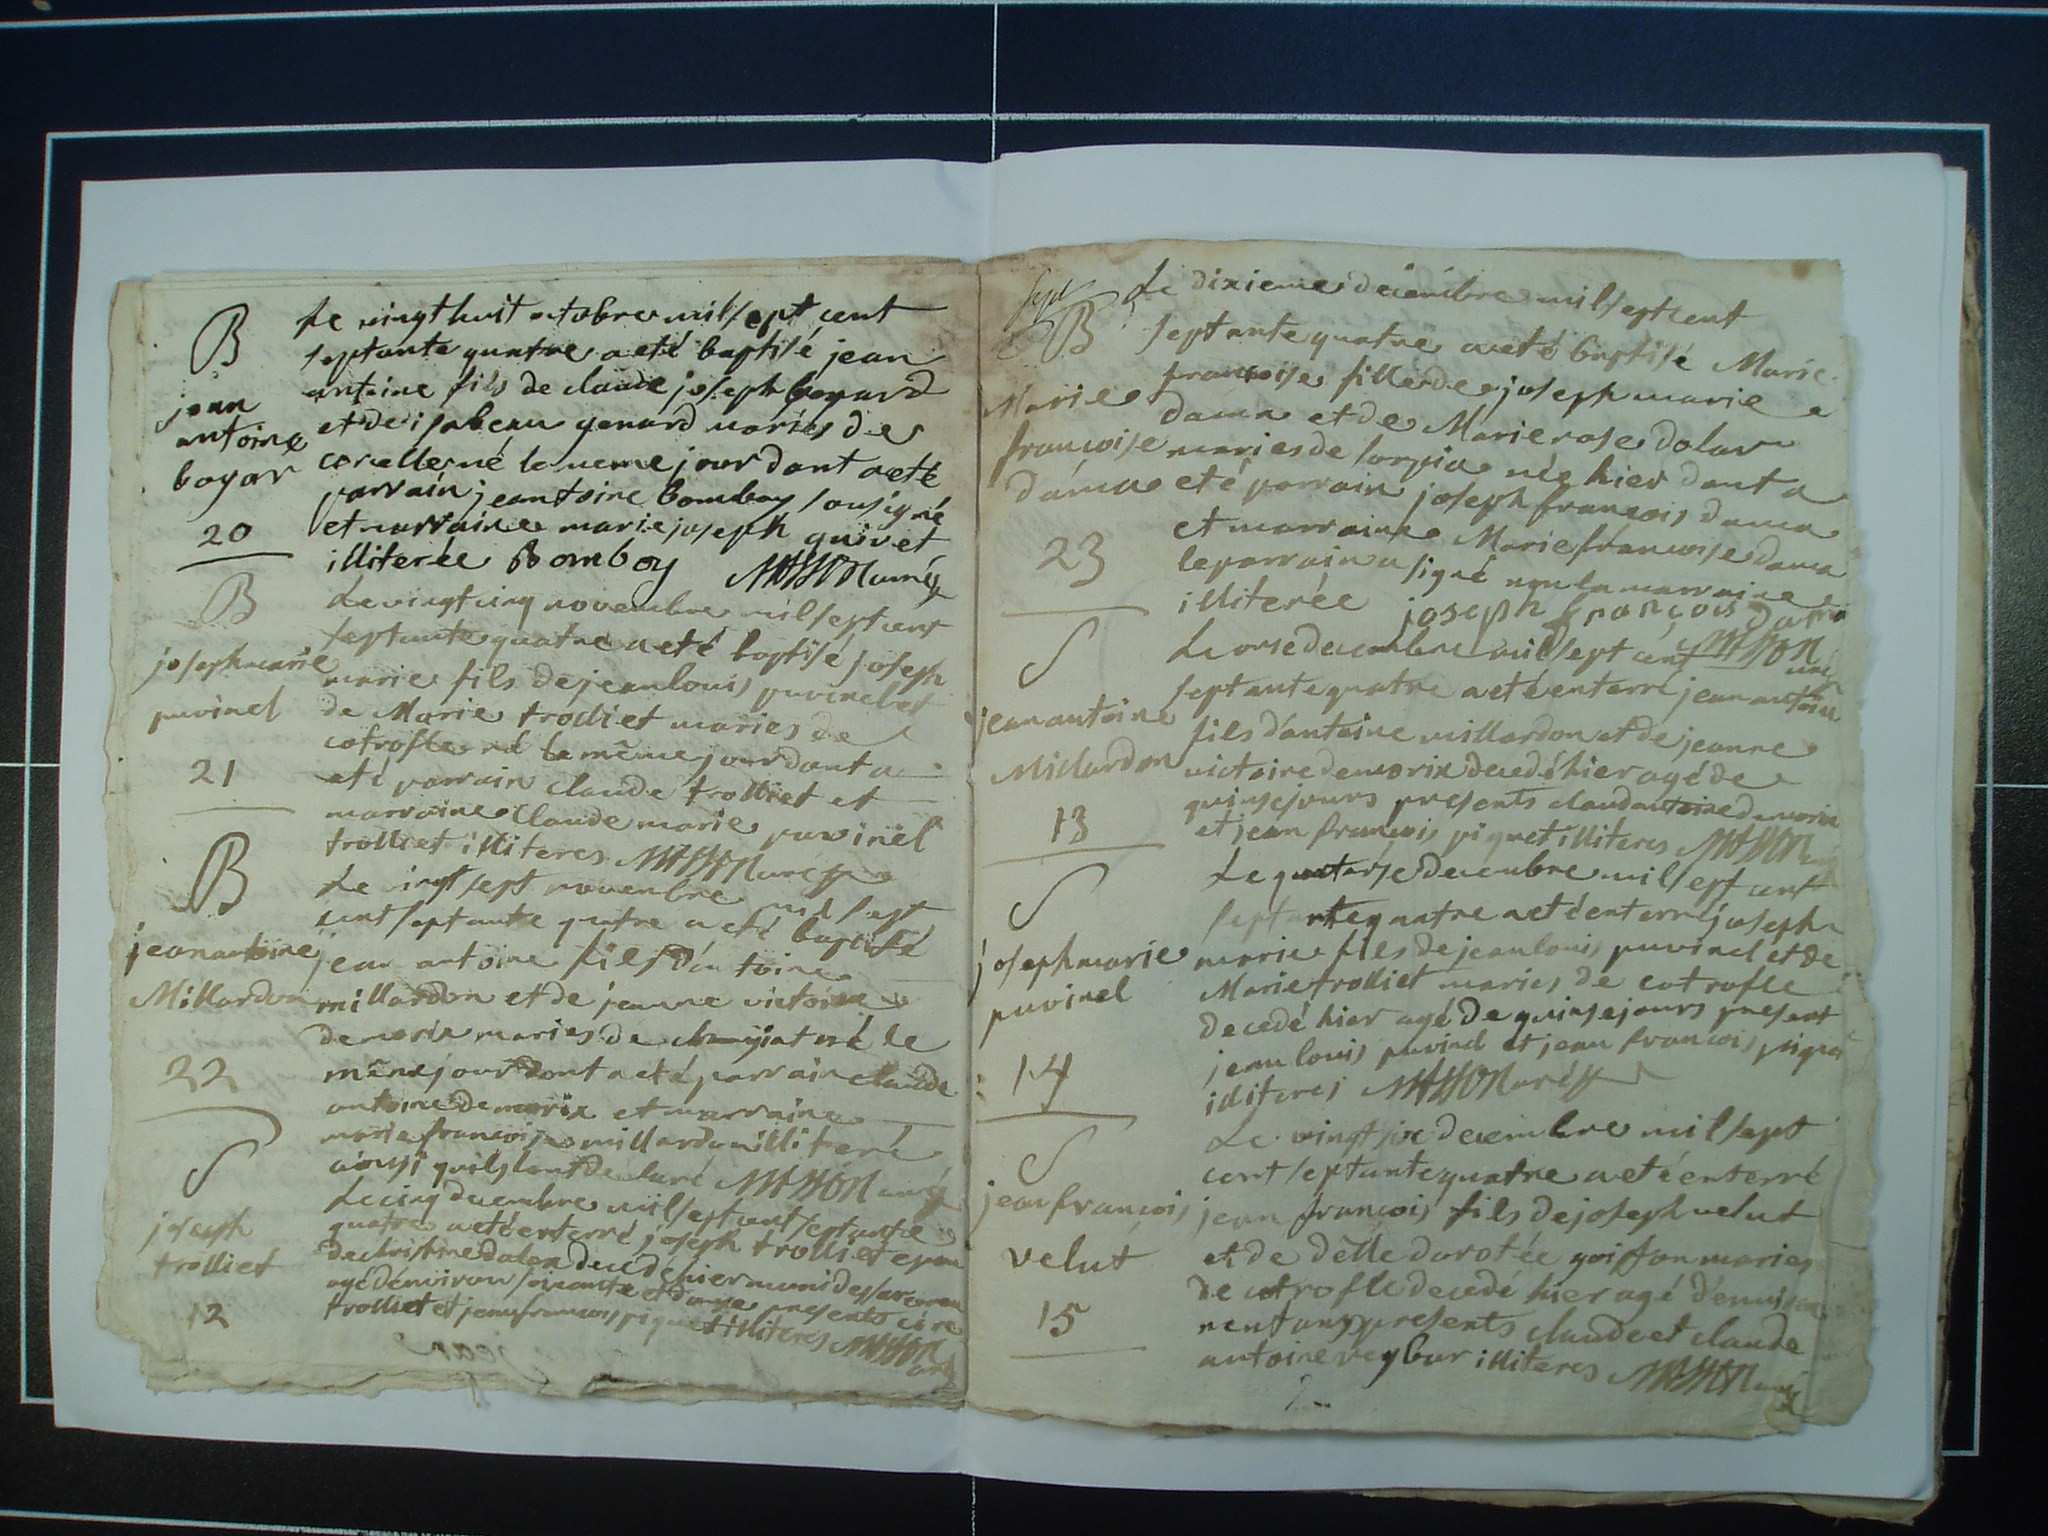 B
jean
antoine
boyar
20
Le vingt huit octobre mil sept cent
septante quatre a eté baptisé jean
antoine fils de claude joseph boyard
et de isabeau genard mariés de
né le meme jour dont a eté
parrain jeantoine bomboy sousigné
et marraine marie joseph guivet
illiterée Bomboy MASSON curé
B
joseph marie
puvinel
21
Le vingt cinq novembre mil sept cent
septante quatre a eté baptisé joseph
marie fils de jean louis puvinel et
de Marie trolliet maries de
cotrofle né le même jour dont a
eté parrain claude trolliet et
marraine claude marie puvinel
trolliet illiteres MASSON curé
B
jean antoine
Millardon
22
Le vingt sept novembre mil sept
cent septante quatre a eté baptisé
jean antoine fils d'antoine
millardon et de jeanne victoire
demorix maries de né le
même jour dont a eté parrain claude
antoine demorix et marraine
marie francoise millardon illiteré
ainsi quils l'ont declaré MASSON curé
S
joseph
trolliet
12
Le cinq decembre mil sept cent septante
quatre a eté enterré joseph trolliet epou
de christine dalox decedé hier muni des sacremen
agé d'environ soixante et douze presents
trolliet et jean francois piquet illiteres MASSON
curé
B
Marie
francoise
dama
23
Le dixieme decembre mil sept cent
septante quatre a eté baptisé Marie
francoise fille de joseph marie
dama et de Marie rose dolar
maries de sorpia née hier dont a
eté parrain joseph francois dama
et marraine Marie francoise dama
le parrain a signé non la marraine
illiterée joseph françois dama
MASSON curé
S
jean antoine
Millardon
13
Le onse decembre mil sept cent
septante quatre a eté enterré jean antoine
fils d'antoine millardon et de jeanne
victoire demorix decedé hier agé de
quinse jours presents claud antoine demorix
et jean francois piquet illiteres MASSON curé
S
joseph marie
puvinel
14
Le quatorse decembre mil sept cent
septante quatre a eté enterré joseph
marie fils de jean louis puvinel et de
Marie trolliet maries de cotrofle
decedé hier agé de quinse jours present
jean louis puvinel et jean francois piquet
illiteres MASSON curé
S
jean françois
velut
15
Le vingt six decembre mil sept
cent septante quatre a eté enterré
jean francois fils de joseph velut
et de delle dorotée goiffon maries
de cotrofle decedé hier agé d'environ
neuf ans presents claude et claude
antoine reybur illiteres MASSON curé